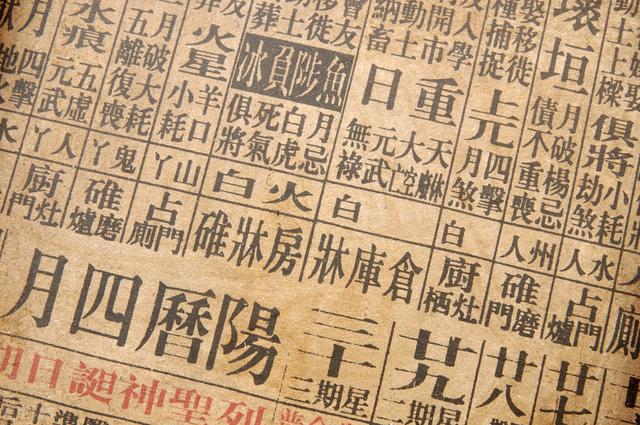 娶移徙
種捕捉
入學
開市
動土
納畜
會友
移徙
葬土
壞垣
月破楊忌
債不重喪
俱將
小耗
劫煞
上元
四擊
月煞
重日
天
大空
元武
無祿
魚陟負冰
月忌
白虎
死氣
俱將
火星
羊口
小耗
二月破大耗
五離復喪
水痕
五虛
元武
月四擊
水人
州人
白
白
火白
山丫
鬼丫
人丫
水
廁
占門爐
碓磨門
廚灶栖
倉庫牀
房牀碓
占門廁
碓磨爐
廚灶門
廿七
廿八
廿九
星期二
三十
星期三
陽曆四月
列聖神誕日期